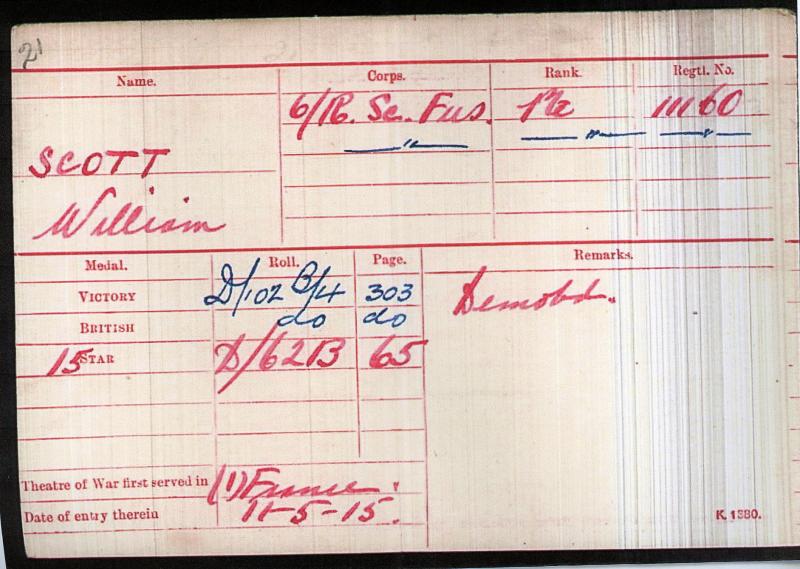 21
Name. Corps. Rank. Regtl. No.
6/R. Sc. Fus. Pte 11160
" " "
SCOTT
William
Medal. Roll. Page. Remarks.
VICTORY D/102 B/4 303 Demobd.
BRITISH do do
15 STAR D/62B 65
Theatre of War first served in (1) France.
Date of entry therein 11-5-15.
K. 1380.